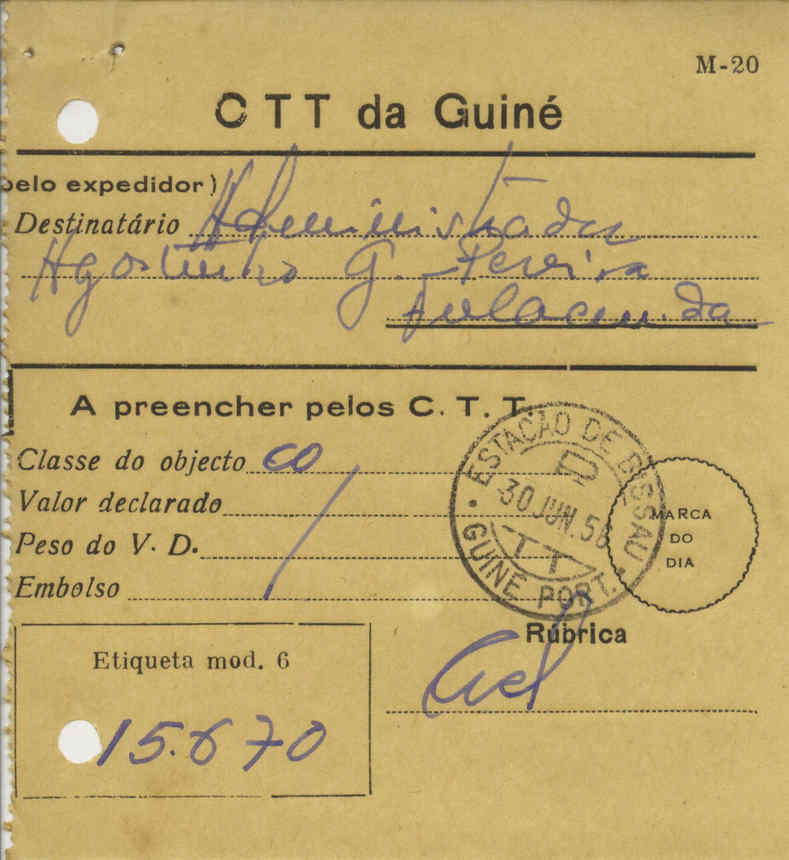 M-20
CTT da Guiné
pelo expedidor)
Destinatário Administrador
Agostinho G. Pereira
Fulacunda
A preencher pelos C. T. T.
Classe do objecto co
Valor declarado
Peso do V. D.
Embolso
ESTAÇÃO DE BISSAU
30 JUN. 56
TT
GUINÉ PORT.
MARCA
DO
DIA
Rúbrica
Etiqueta mod. 6
15.670